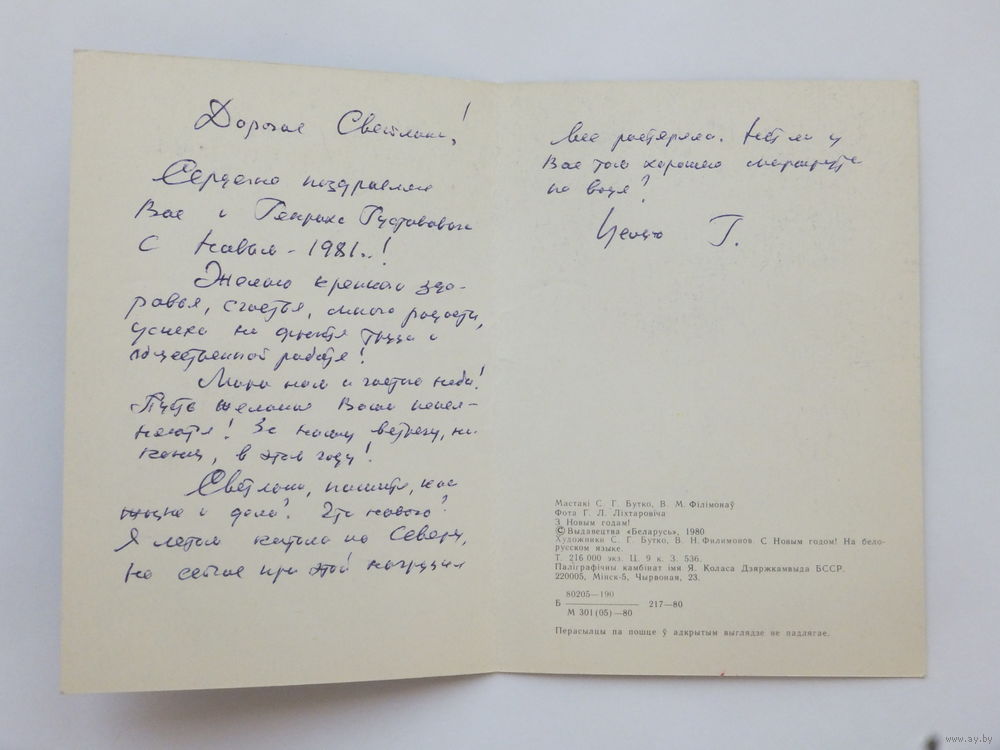 Дорогая Светлана!
Сердечно поздравляем
Вас и Генриха Густавовича
С Новым - 1981..!
Желаю крепкого здо-
ровья, счастья, много радости,
успеха на фронте труда и
общественной работе!
Мира нам и чистого неба!
Пусть желания Ваши испол-
няются! За нашу встречу, на-
конец, в этом году!
Светлана, пишите, как
жизнь и дела? Что нового?
Я летом катала по Северу,
но сейчас при этой нагрузке
все растеряла. Нет ли у
Вас там хорошего маршрута
по воде?
Целую Г.
Мастакі С. Г. Бутко, В. М. Філімонаў
Фота Г. Л. Ліхтаровіча
З Новым годам!
© Выдавецтва «Беларусь», 1980
Художники С. Г. Бутко, В. Н. Филимонов. С Новым годом! На бело-
русском языке.
Т. 216 000 экз. Ц. 9 к. З. 536.
Паліграфічны камбінат імя Я. Коласа Дзяржкамвыда БССР.
220005, Мінск-5, Чырвоная, 23.
80205—190
Б 217—80
М 301(05)—80
Перасылцы па пошце ў адкрытым выглядзе не падлягае.
www.ay.by